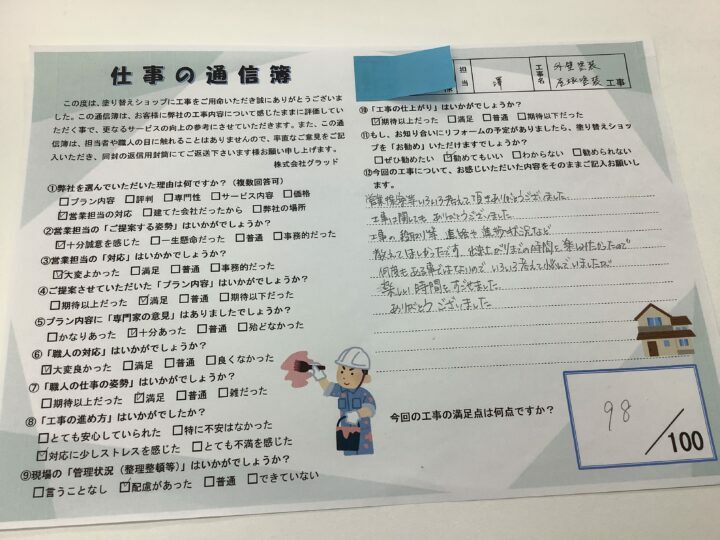 仕事の通信簿
この度は、塗り替えショップに工事をご用命いただき誠にありがとうございま
した。この通信簿は、お客様に弊社の工事内容について感じたままに評価してい
ただく事で、更なるサービスの向上の参考にさせていただきます。また、この通
信簿は、担当者や職人の目に触れることはありませんので、率直なご意見をご記
入いただき、同封の返信用封筒にてご返送下さいます様お願い申し上げます。
株式会社グラッド
①弊社を選んでいただいた理由は何ですか？（複数回答可）
□プラン内容 □評判 □専門性 □サービス内容 □価格
☑営業担当の対応 □建てた会社だったから □弊社の場所
②営業担当の「ご提案する姿勢」はいかがでしょうか？
☑十分誠意を感じた □一生懸命だった □普通 □事務的だった
③営業担当の「対応」はいかがでしょうか？
☑大変よかった □満足 □普通 □事務的だった
④ご提案させていただいた「プラン内容」はいかがでしょうか？
□期待以上だった ☑満足 □普通 □期待以下だった
⑤プラン内容に「専門家の意見」はありましたでしょうか？
□かなりあった ☑十分あった □普通 □殆どなかった
⑥「職人の対応」はいかがでしょうか？
☑大変良かった □満足 □普通 □良くなかった
⑦「職人の仕事の姿勢」はいかがでしょうか？
□期待以上だった ☑満足 □普通 □雑だった
⑧「工事の進め方」はいかがでしたか？
□とても安心していられた □特に不安はなかった
☑対応に少しストレスを感じた □とても不満を感じた
⑨現場の「管理状況（整理整頓等）」はいかがでしょうか？
□言うことなし ☑配慮があった □普通 □できていない
様 担当 澤 工事名 外壁塗装 屋根塗装 工事
⑩「工事の仕上がり」はいかがでしょうか？
☑期待以上だった □満足 □普通 □期待以下だった
⑪もし、お知り合いにリフォームの予定がありましたら、塗り替えショッ
プを「お勧め」いただけますでしょうか？
□ぜひ勧めたい ☑勧めてもいい □わからない □勧められない
⑫今回の工事について、お感じいただいた内容をそのままご記入お願いし
ます。
営業様等いろいろ考えて頂きありがとうございました。
工事に関しても ありがとうございました。
工事の段取り等 進捗状況など
教えてほしかったです 仕上がりまでの時間を楽しみたかったので
何度もある事ではないので いろいろ考えて悩んでいましたが
楽しい時間をすごせました
ありがとうございました
今回の工事の満足点は何点ですか？
98／100